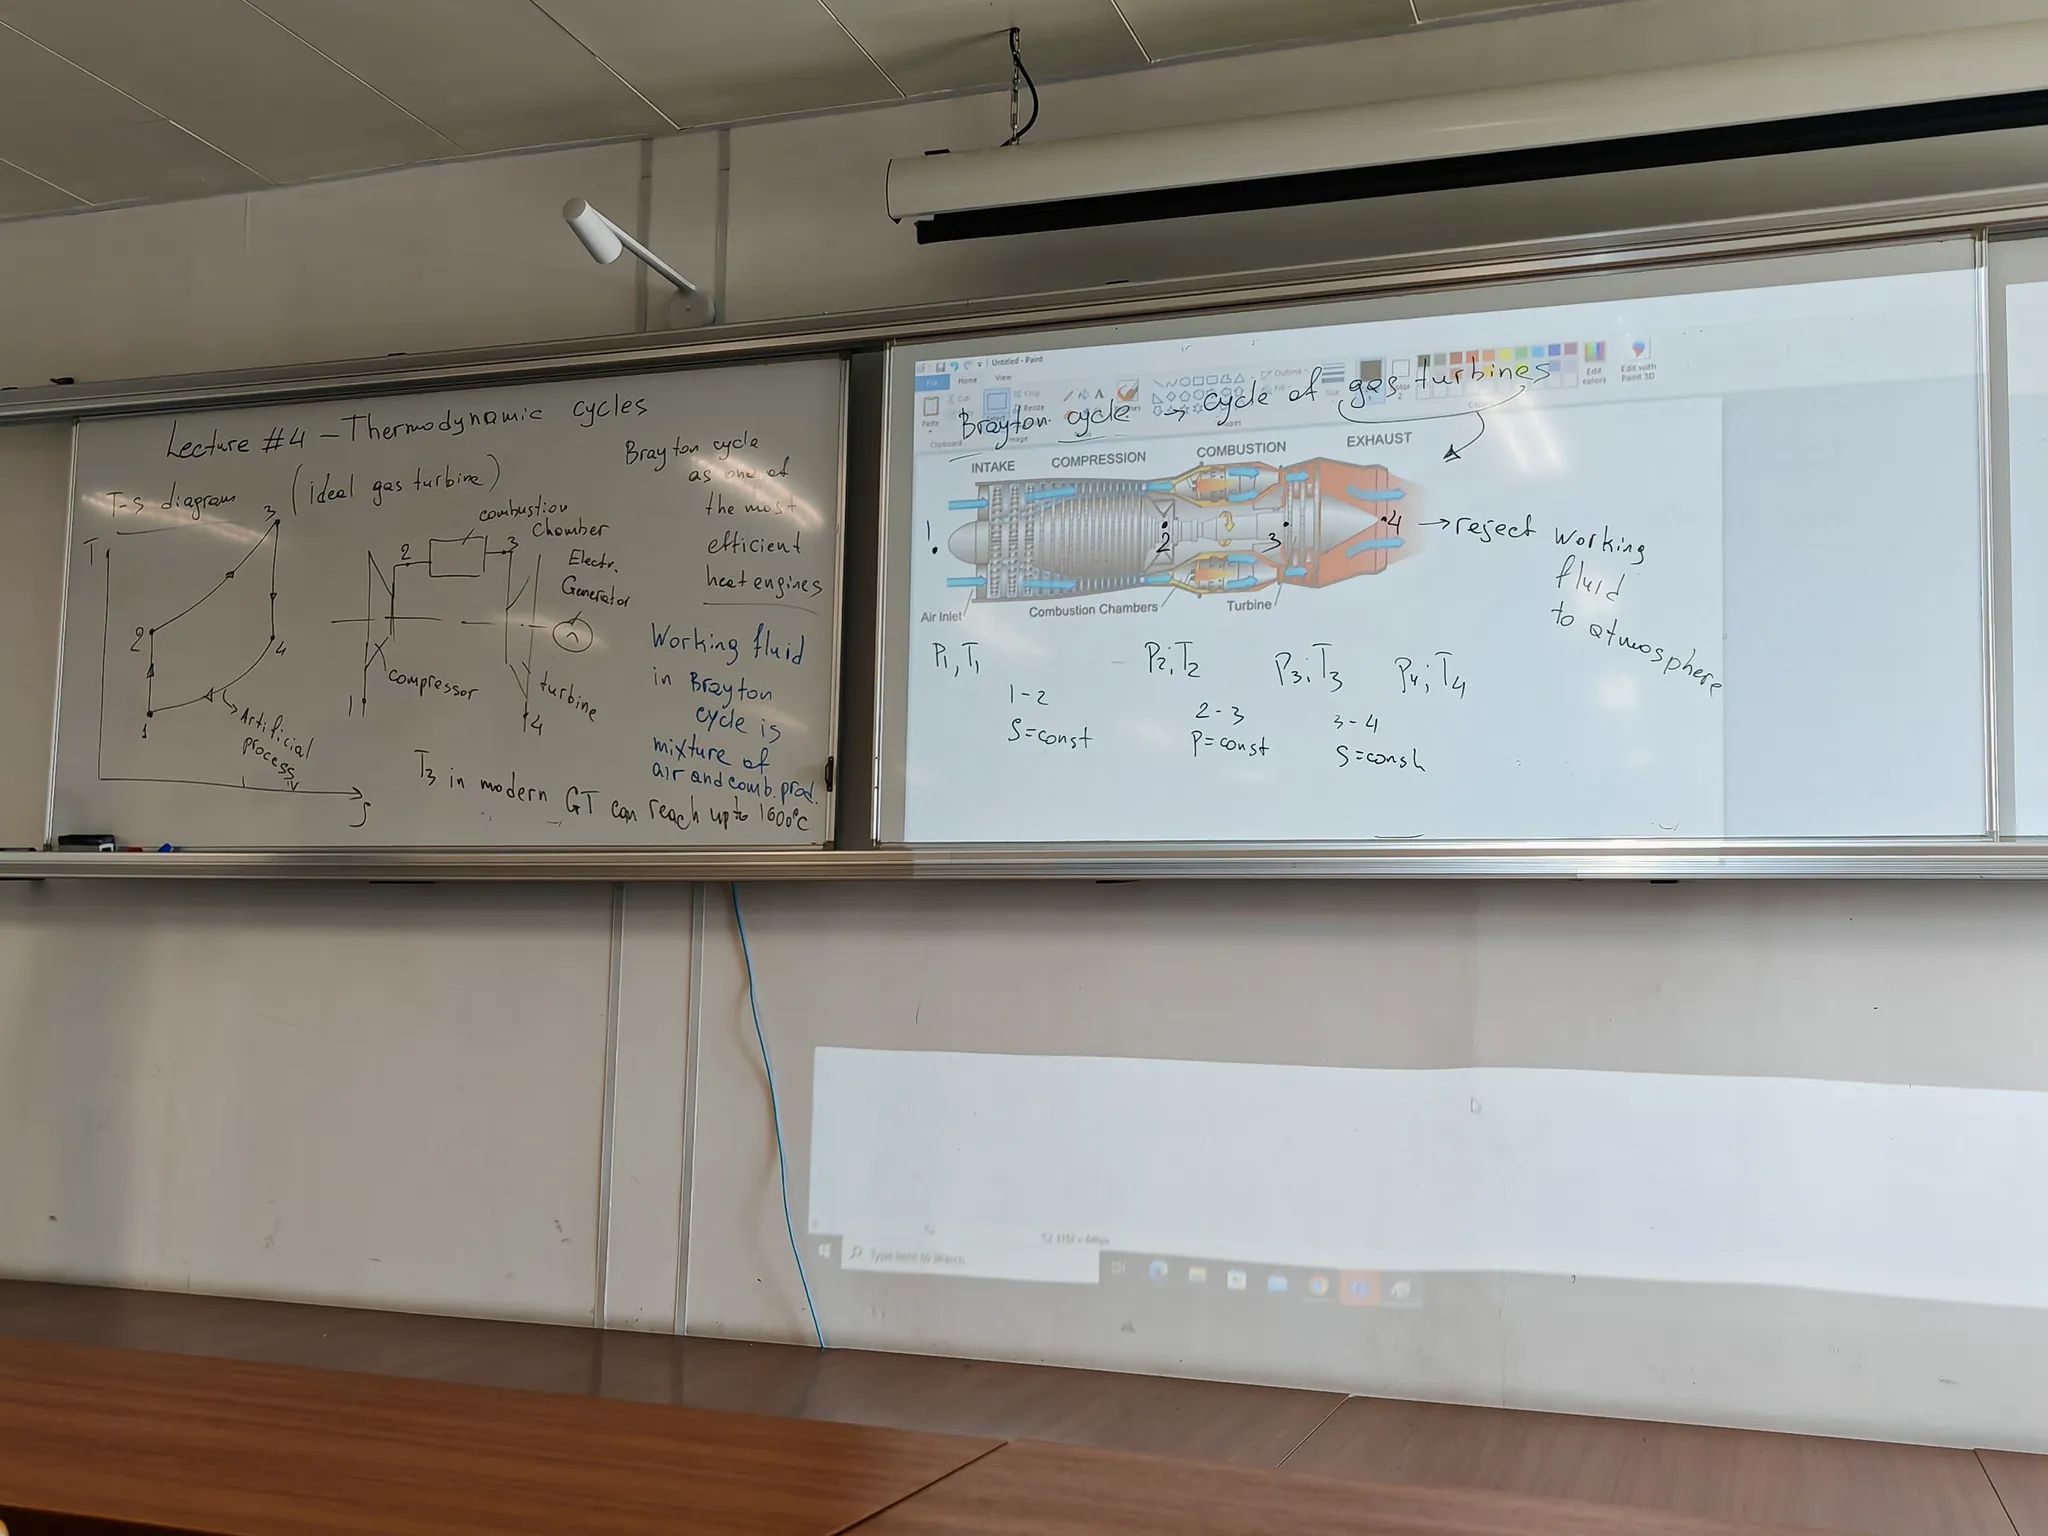 Lecture #4 – Thermodynamic cycles
(ideal gas turbine)
T-S diagram
T
3
2
4
1
S
Artificial
process
combustion
Chamber
2
3
Electr.
Generator
~
compressor
turbine
1
4
Brayton cycle
as one of
the most
efficient
heat engines
Working fluid
in Brayton
cycle is
mixture of
air and comb. prod.
T3 in modern GT can reach up to 1600°C
Untitled - Paint
File
Home
View
Paste
Clipboard
Cut
Crop
Resize
Outline
Fill
Edit
colors
Edit with
Paint 3D
Brayton cycle → cycle of gas turbines
INTAKE
COMPRESSION
COMBUSTION
EXHAUST
1
2
3
4 → reject working
fluid
to atmosphere
Air Inlet
Combustion Chambers
Turbine
P1, T1
P2; T2
P3; T3
P4; T4
1-2
S=const
2-3
P=const
3-4
S=const
Type here to search